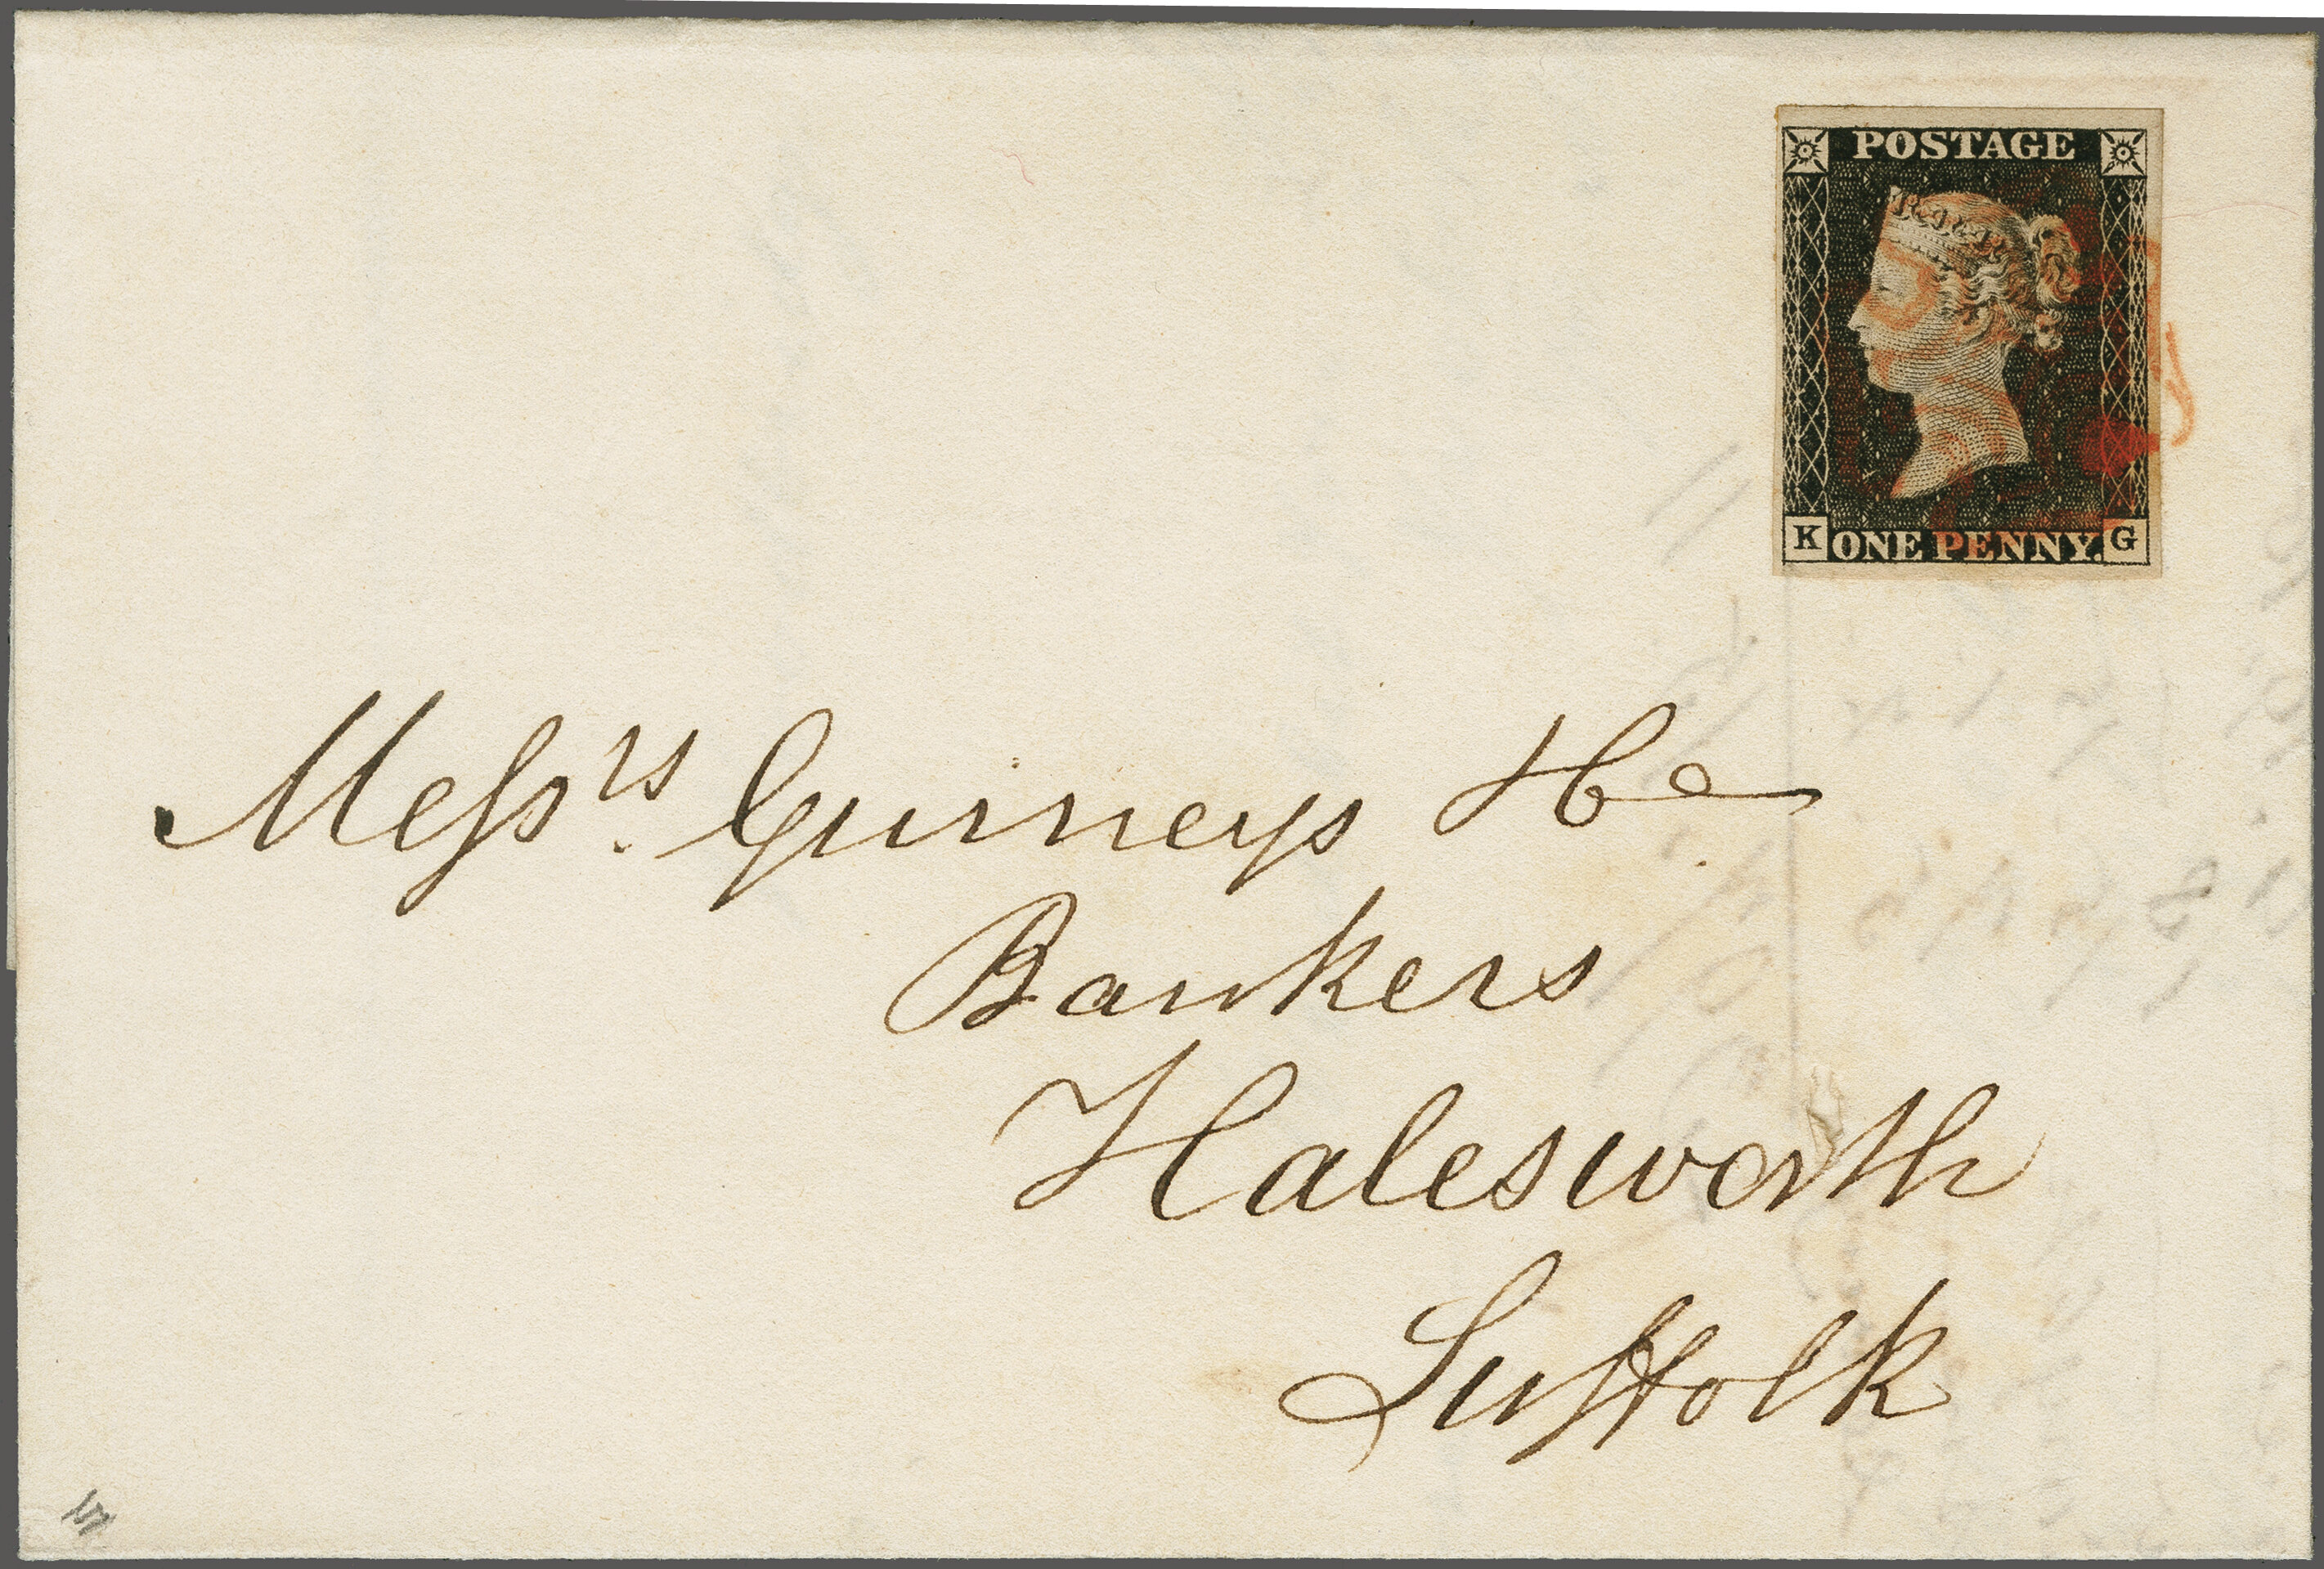 POSTAGE
K ONE PENNY. G
Messrs. Gurneys &
Bankers
Halesworth
Suffolk